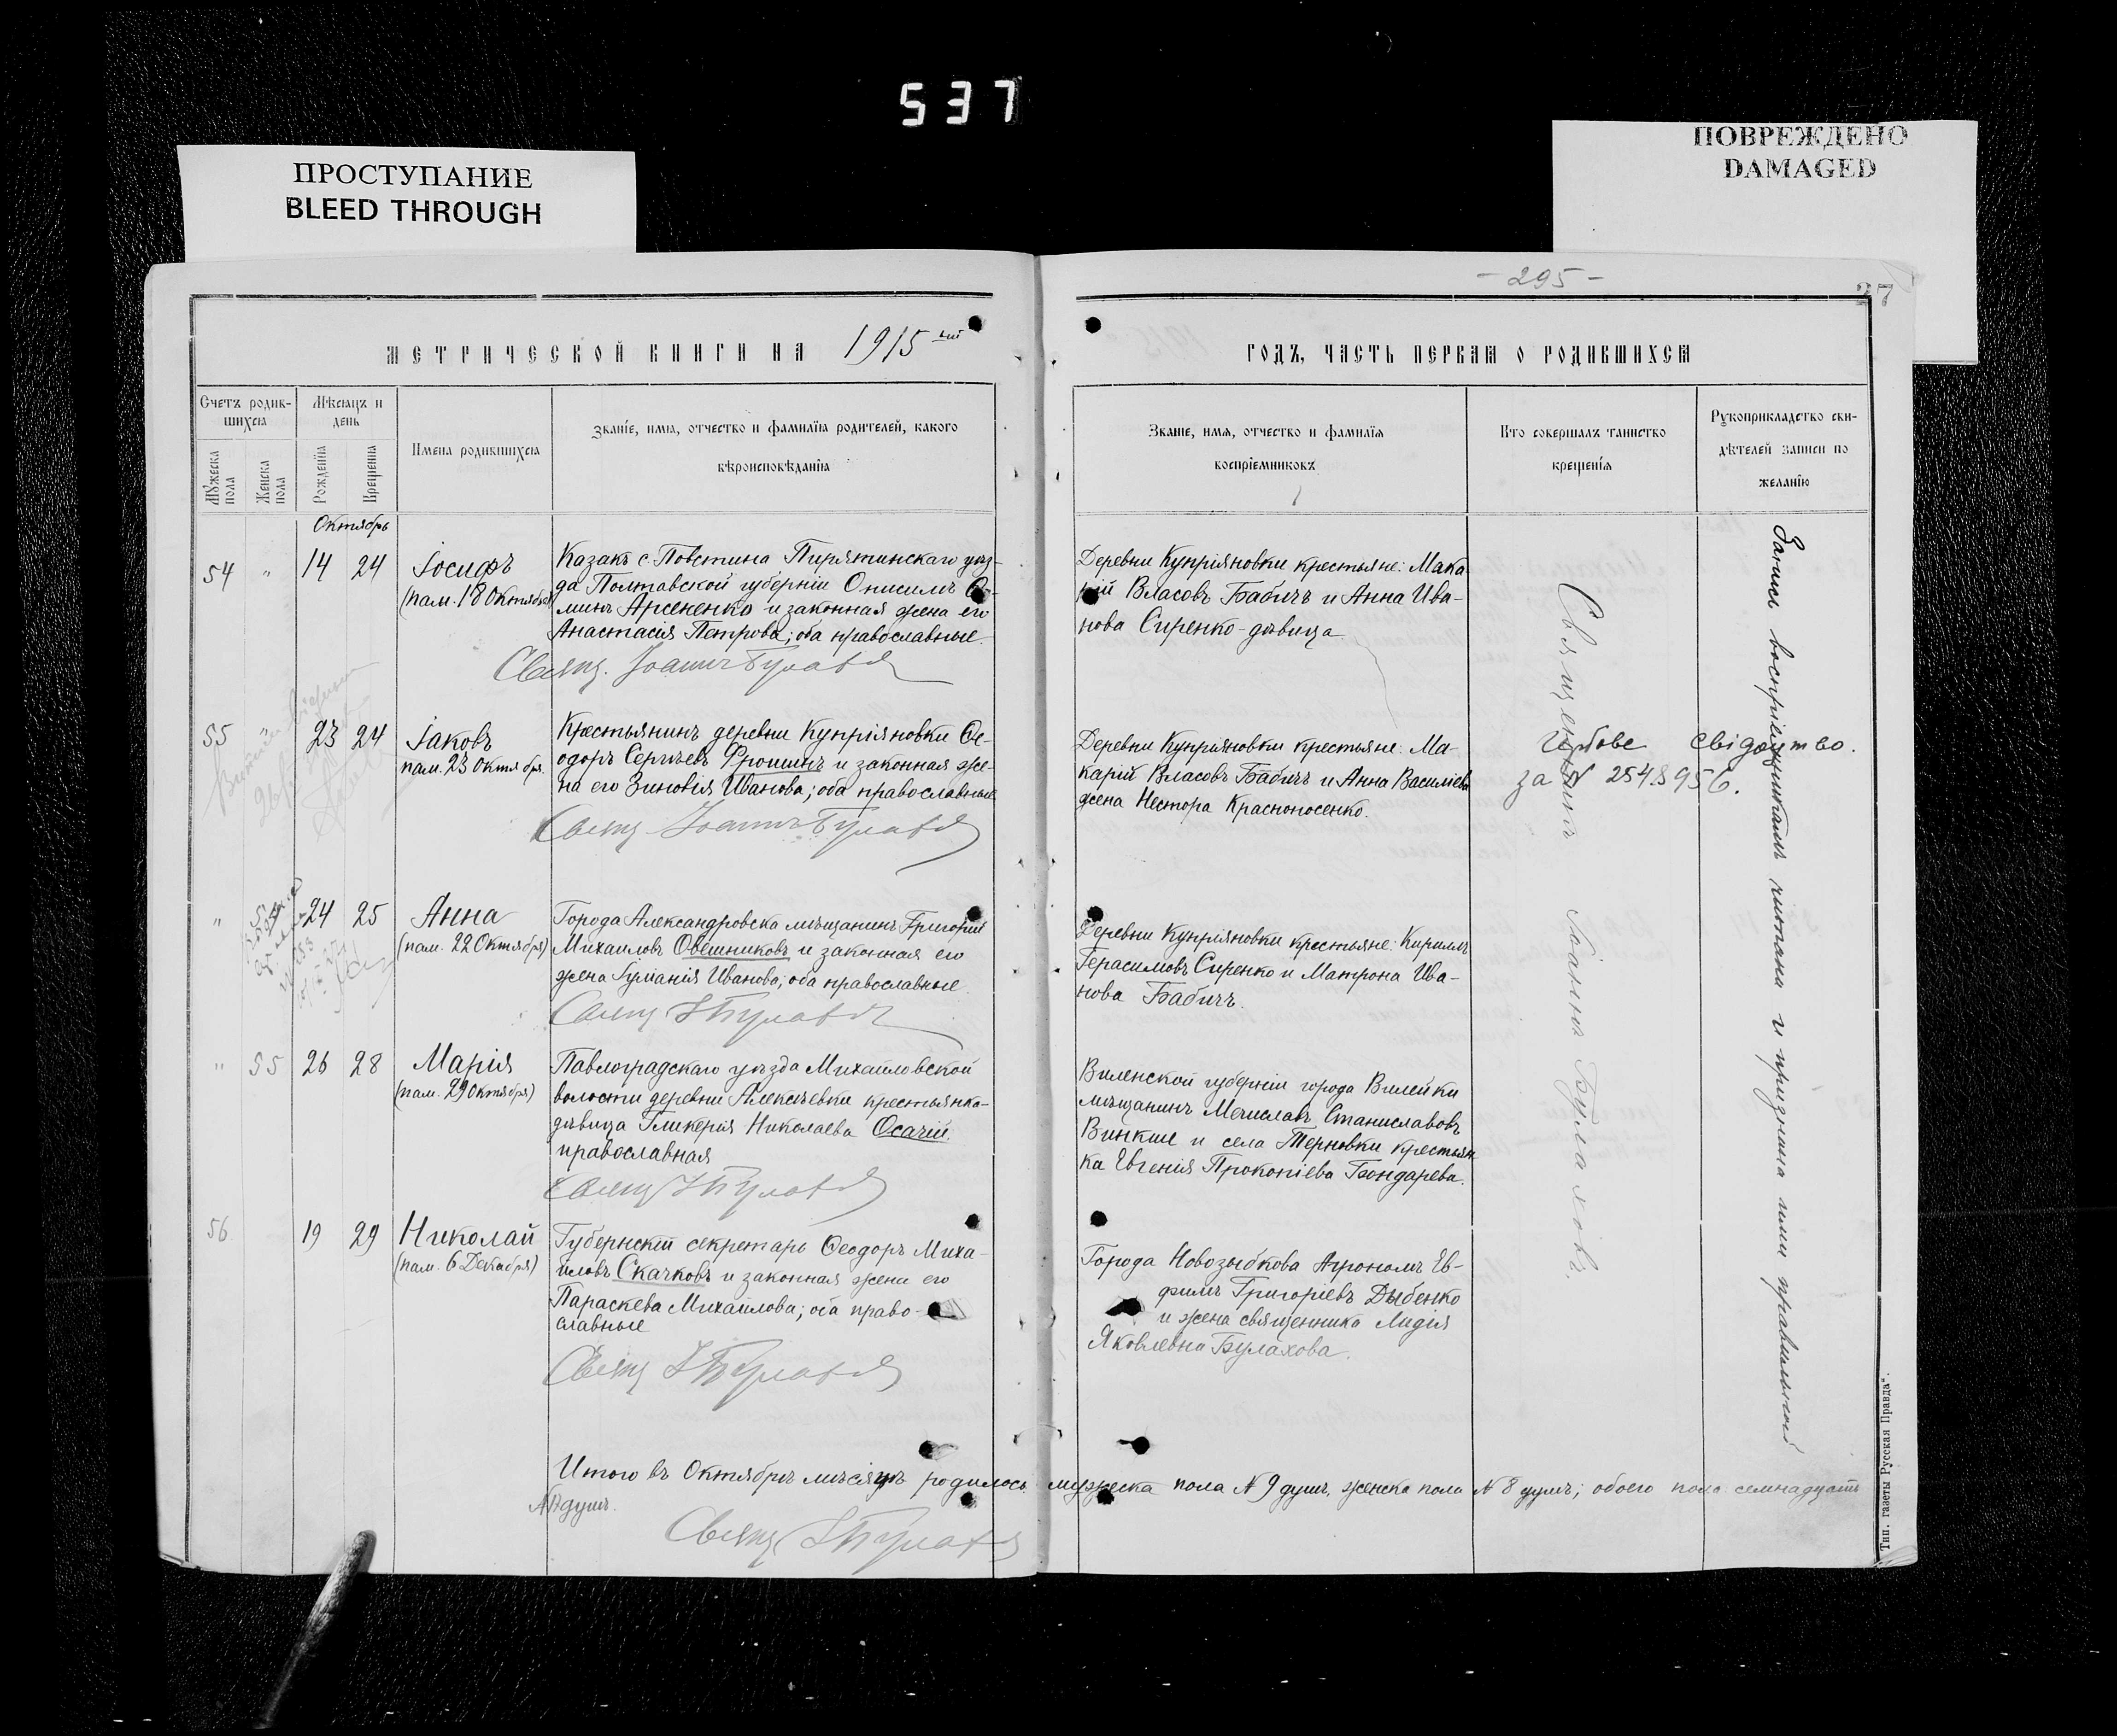 537
ПРОСТУПАНИЕ
BLEED THROUGH
ПОВРЕЖДЕНО
DAMAGED
- 295 -
27
МЕТРИЧЕСКОЙ КНИГИ НА 1915 ый
ГОДЪ, ЧАСТЬ ПЕРВАЯ О РОДИВШИХСЯ
Счетъ родив-
шихся
Мѣсяцъ и
день
Мужеска
пола
Женска
пола
Рожденія
Крещенія
Имена родившихся
Званіе, имя, отчество и фамилія родителей, какого
вѣроисповѣданія
Званіе, имя, отчество и фамилія
воспріемниковъ
Кто совершалъ таинство
крещенія
Рукоприкладство сви-
дѣтелей записи по
желанію
Октябрь
54 " 14 24 Іосифъ
(пам. 18 Октября)
Казакъ с. Повстина Пирятинскаго уѣз-
да Полтавской губерніи Онисимъ
минъ Арсененко и законная жена его
Анастасія Петрова; оба православные
Свящ. Іоаннъ Булаховъ
Деревни Купріяновки крестьяне: Мака-
рій Власовъ Бабичъ и Анна Ива-
нова Сиренко-дѣвица
55 " 23 24 Іаковъ
пам. 23 Октября.
Крестьянинъ деревни Купріяновки Ѳе-
одоръ Сергѣевъ Фроишнъ и законная же-
на его Зиновія Иванова; оба православные
Свящ Іоаннъ Булаховъ
Деревни Купріяновки крестьяне: Ма-
карій Власовъ Бабичъ и Анна Василіева
жена Нестора Красноносенко.
Гербове свідоцтво.
за № 254.8956.
" 54 24 25 Анна
(пам. 22 Октября)
Города Александровска мѣщанинъ Григорій
Михаиловъ Овешниковъ и законная его
жена Іуліанія Иванова; оба православные
Свящ І Булаховъ
Деревни Купріяновки крестьяне: Кириллъ
Герасимовъ Сиренко и Матрона Ива-
нова Бабичъ.
" 55 26 28 Марія
(пам. 29 Октября)
Павлоградскаго уѣзда Михайловской
волости деревни Алексѣевки крестьянка-
дѣвица Гликерія Николаева Осачій
православная
Свящ І Булаховъ
Виленской губерніи города Вилейки
мѣщанинъ Мечиславъ Станиславовъ
Винкше и села Терновки крестьян-
ка Евгенія Прокопіева Бондарева.
56 19 29 Николай
(пам. 6 Декабря)
Губернскій секретарь Ѳеодоръ Миха-
иловъ Скачковъ и законная жена его
Параскева Михаилова; оба право-
славные
Свящ І Булаховъ
Города Новозыбкова Агрономъ Ев-
фимъ Григоріевъ Дыбенко
и жена священника Лидія
Яковлевна Булахова.
Священникъ Іоаннъ Булаховъ.
Запись воспріемникамъ читана и признана ими правильной
Итого въ Октябрѣ мѣсяцѣ родилось мужеска пола № 9 душъ, женска пола № 8 душъ; обоего пола семнадцать
душъ.
Свящ І Булаховъ
Тип. газеты „Русская Правда“.